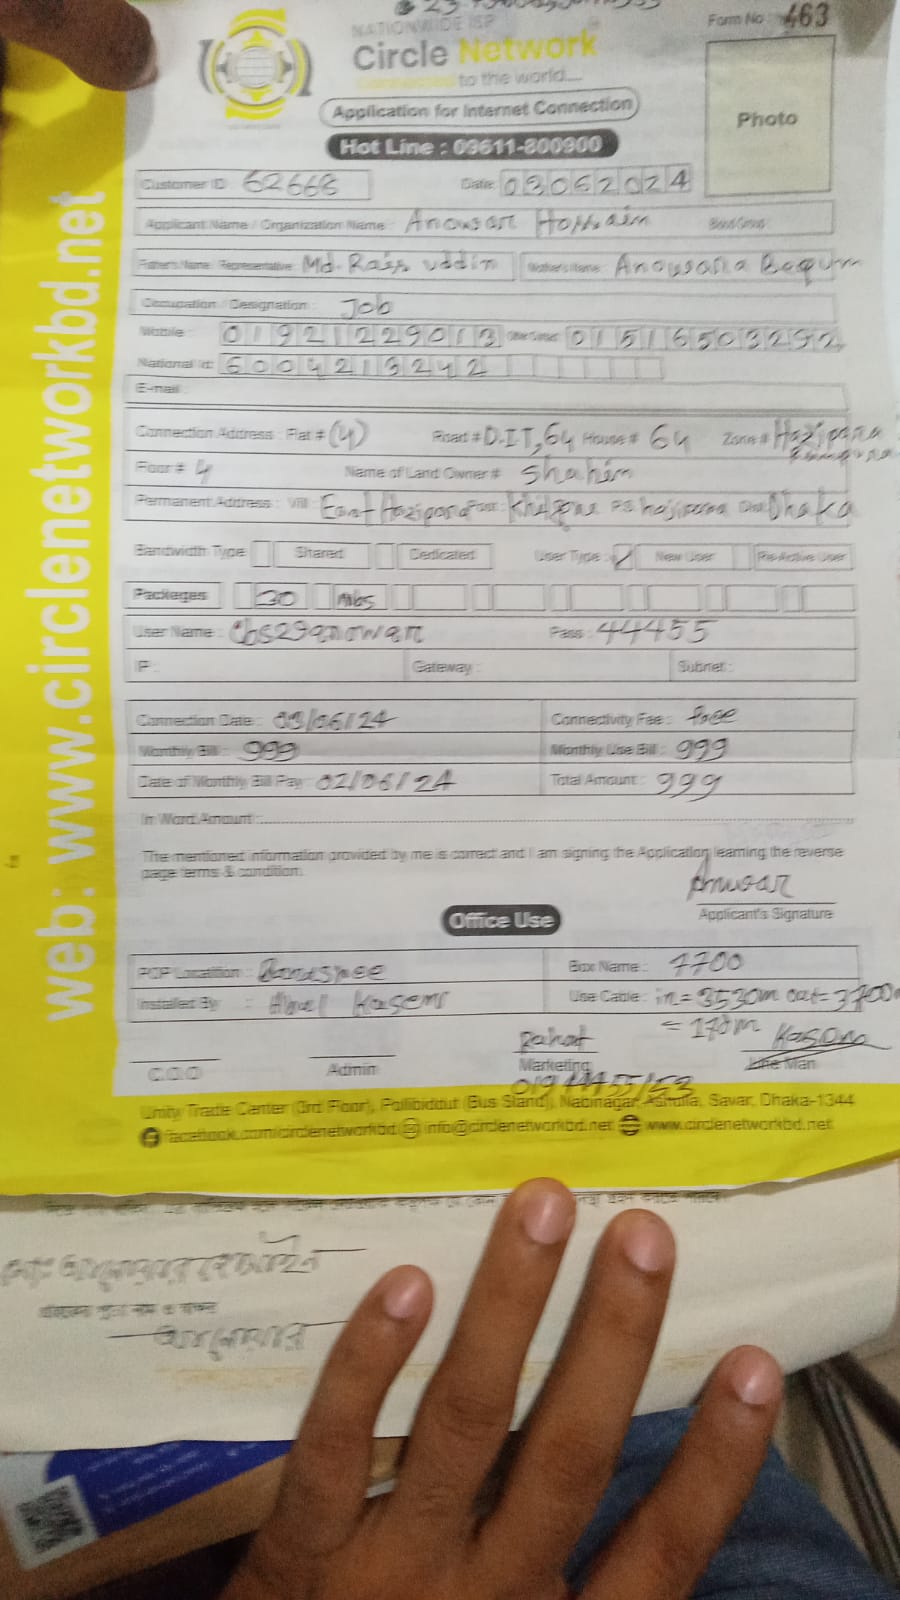 NATIONWIDE ISP
Form No : 463
Circle Network
Connected to the world....
Application for Internet Connection
Hot Line : 09611-800900
Photo
Customer ID : 62668 Date: 03062024
Applicant Name / Organization Name : Anowsar Hossain Blood Group :
Father's Name / Representative : Md. Rais uddin Mother's Name : Anowsara Begum
Occupation / Designation : Job
Mobile : 01921229013 01516503292
National Id: 6004213242
E-mail :
Connection Address : Flat # (4) Road # D.I.T, 64 House # 64 Zone # Hazipara
Floor # 4 Name of Land Owner # Shahin
Permanent Address : Vill : East Hazipara Post : Khilgaw P.S hajipara Dist Dhaka
Bandwidth Type Shared Dedicated User Type : ✓ New User Re-Active User
Packages 30 Mbs
User Name : Cbs29anowar Pass : 44455
IP : Gateway : Subnet :
Connection Date : 03/06/24 Connectivity Fee : free
Monthly Bill : 999 Monthly Use Bill : 999
Date of Monthly Bill Pay : 02/06/24 Total Amount : 999
In Word Amount :
The mentioned information provided by me is correct and I am signing the Application learning the reverse
page terms & condition.
Anwar
Applicant's Signature
Office Use
POP Location : Banasree Box Name : 7700
Installed By : Abul Kasem Use Cable : in = 3530m out = 3700m
= 170m
Rahat Kasem
C.O.O Admin Marketing Line Man
Unity Trade Center (3rd Floor), Pallibiddut (Bus Stand), Nabinagar, Ashulia, Savar, Dhaka-1344
facebook.com/circlenetworkbd info@circlenetworkbd.net www.circlenetworkbd.net
web: www.circlenetworkbd.net